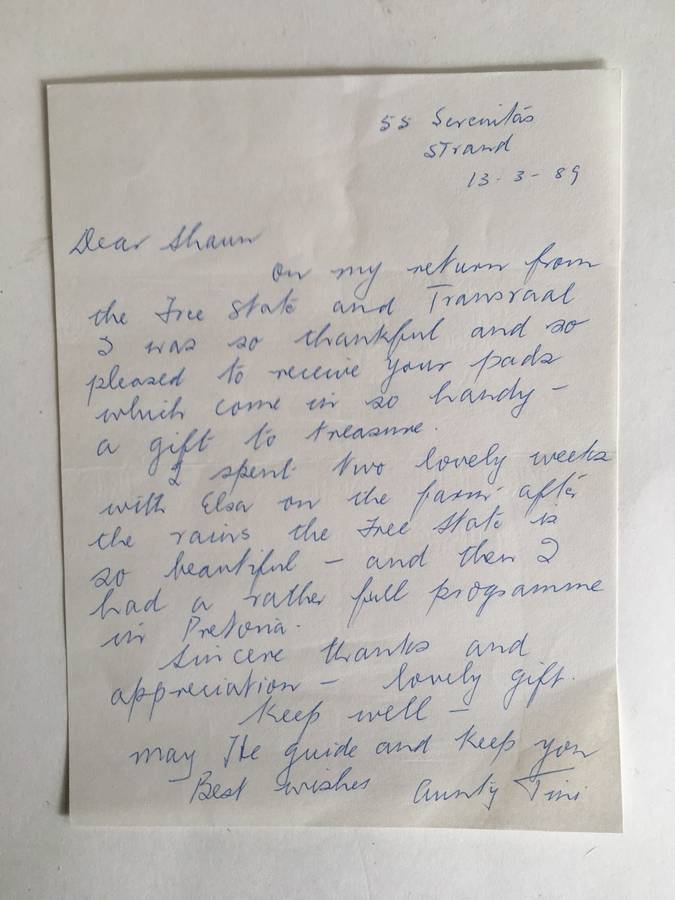 55 Serenitas
Strand
13-3-89
Dear Shaun
on my return from
the Free State and Transvaal
I was so thankful and so
pleased to receive your pads
which come in so handy -
a gift to treasure.
I spent two lovely weeks
with Elsa on the farm after
the rains the Free State is
so beautiful - and then I
had a rather full programme
in Pretoria.
Sincere thanks and
appreciation - lovely gift.
Keep well -
may He guide and keep you
Best wishes Aunty Tini